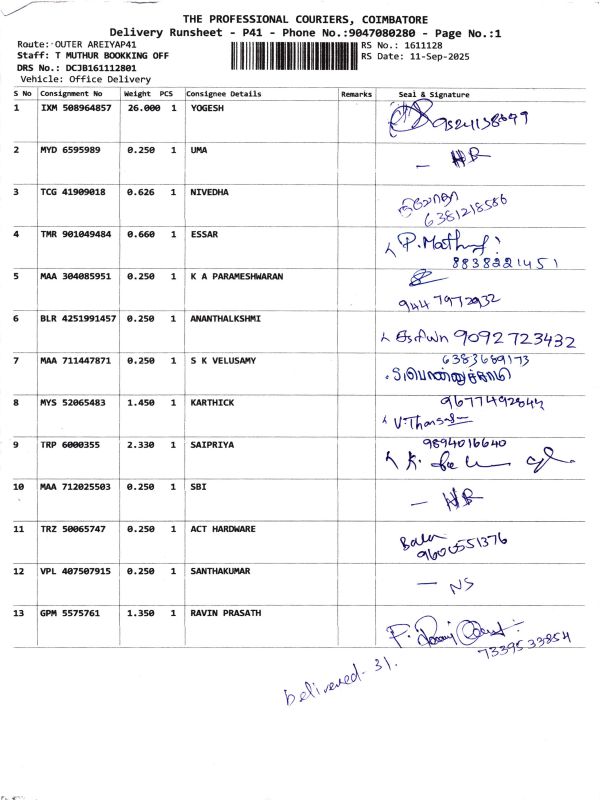 THE PROFESSIONAL COURIERS, COIMBATORE
Delivery Runsheet - P41 - Phone No.:9047080280 - Page No.:1
Route: OUTER AREIYAP41
RS No.: 1611128
Staff: T MUTHUR BOOKKING OFF
RS Date: 11-Sep-2025
DRS No.: DCJB161112801
Vehicle: Office Delivery
S No Consignment No Weight PCS Consignee Details Remarks Seal & Signature
1 IXM 508964857 26.000 1 YOGESH
2 MYD 6595989 0.250 1 UMA — HR
3 TCG 41909018 0.626 1 NIVEDHA
6381218586
4 TMR 901049484 0.660 1 ESSAR
8838221451
5 MAA 304085951 0.250 1 K A PARAMESHWARAN
9447972932
6 BLR 4251991457 0.250 1 ANANTHALKSHMI 9092723432
7 MAA 711447871 0.250 1 S K VELUSAMY 6383689173
8 MYS 52065483 1.450 1 KARTHICK
9 TRP 6000355 2.330 1 SAIPRIYA 9894016640
10 MAA 712025503 0.250 1 SBI — HR
11 TRZ 50065747 0.250 1 ACT HARDWARE Bala
9600551376
12 VPL 407507915 0.250 1 SANTHAKUMAR — NS
13 GPM 5575761 1.350 1 RAVIN PRASATH
7339533854
Delivered - 31.